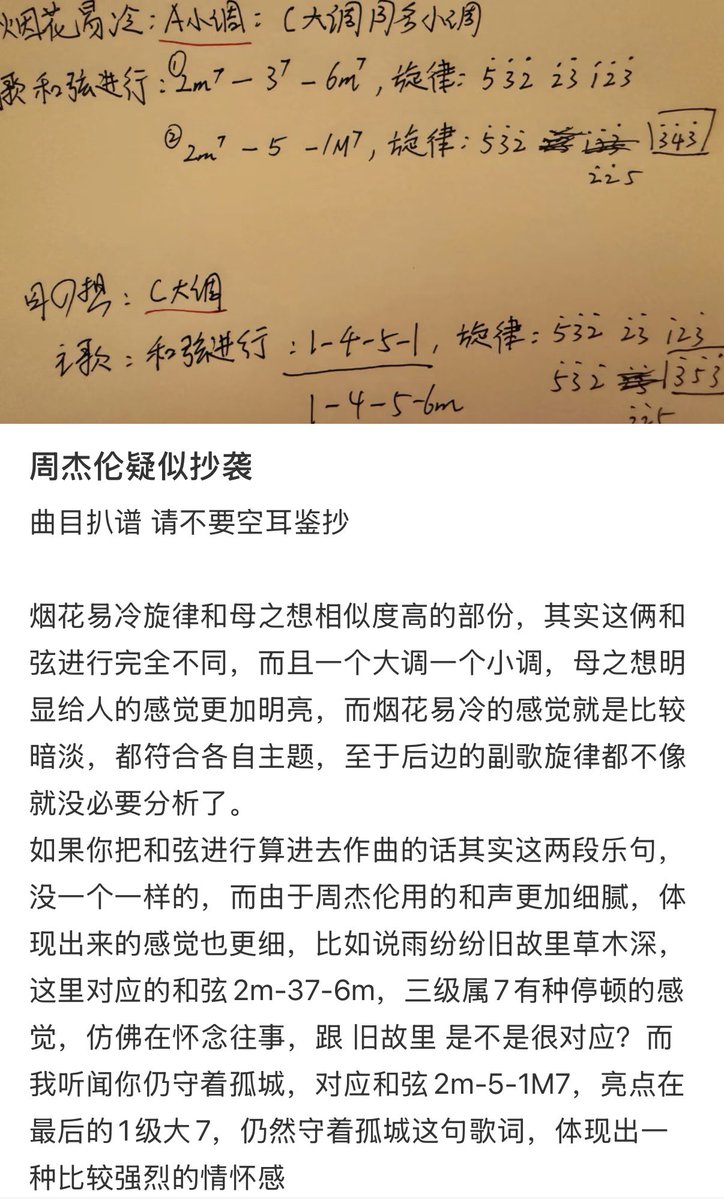 烟花易冷:A小调:C大调同名小调
歌和弦进行:①2m⁷-3⁷-6m⁷,旋律:5̇3̇2̇ 2̇3̇ 1̇2̇3̇
②2m⁷-5-1M⁷,旋律:5̇3̇2̇ 1̇3̇4̇3̇
2̇2̇5
母の想:C大调
主歌:和弦进行:1-4-5-1,旋律:5̇3̇2̇ 2̇3̇ 1̇2̇3̇
1-4-5-6m 5̇3̇2̇ 1̇3̇5̇3̇
2̇2̇5
周杰伦疑似抄袭
曲目扒谱 请不要空耳鉴抄
烟花易冷旋律和母之想相似度高的部份，其实这俩和
弦进行完全不同，而且一个大调一个小调，母之想明
显给人的感觉更加明亮，而烟花易冷的感觉就是比较
暗淡，都符合各自主题，至于后边的副歌旋律都不像
就没必要分析了。
如果你把和弦进行算进去作曲的话其实这两段乐句，
没一个一样的，而由于周杰伦用的和声更加细腻，体
现出来的感觉也更细，比如说雨纷纷旧故里草木深，
这里对应的和弦2m-37-6m，三级属7有种停顿的感
觉，仿佛在怀念往事，跟 旧故里 是不是很对应？而
我听闻你仍守着孤城，对应和弦2m-5-1M7，亮点在
最后的1级大7，仍然守着孤城这句歌词，体现出一
种比较强烈的情怀感